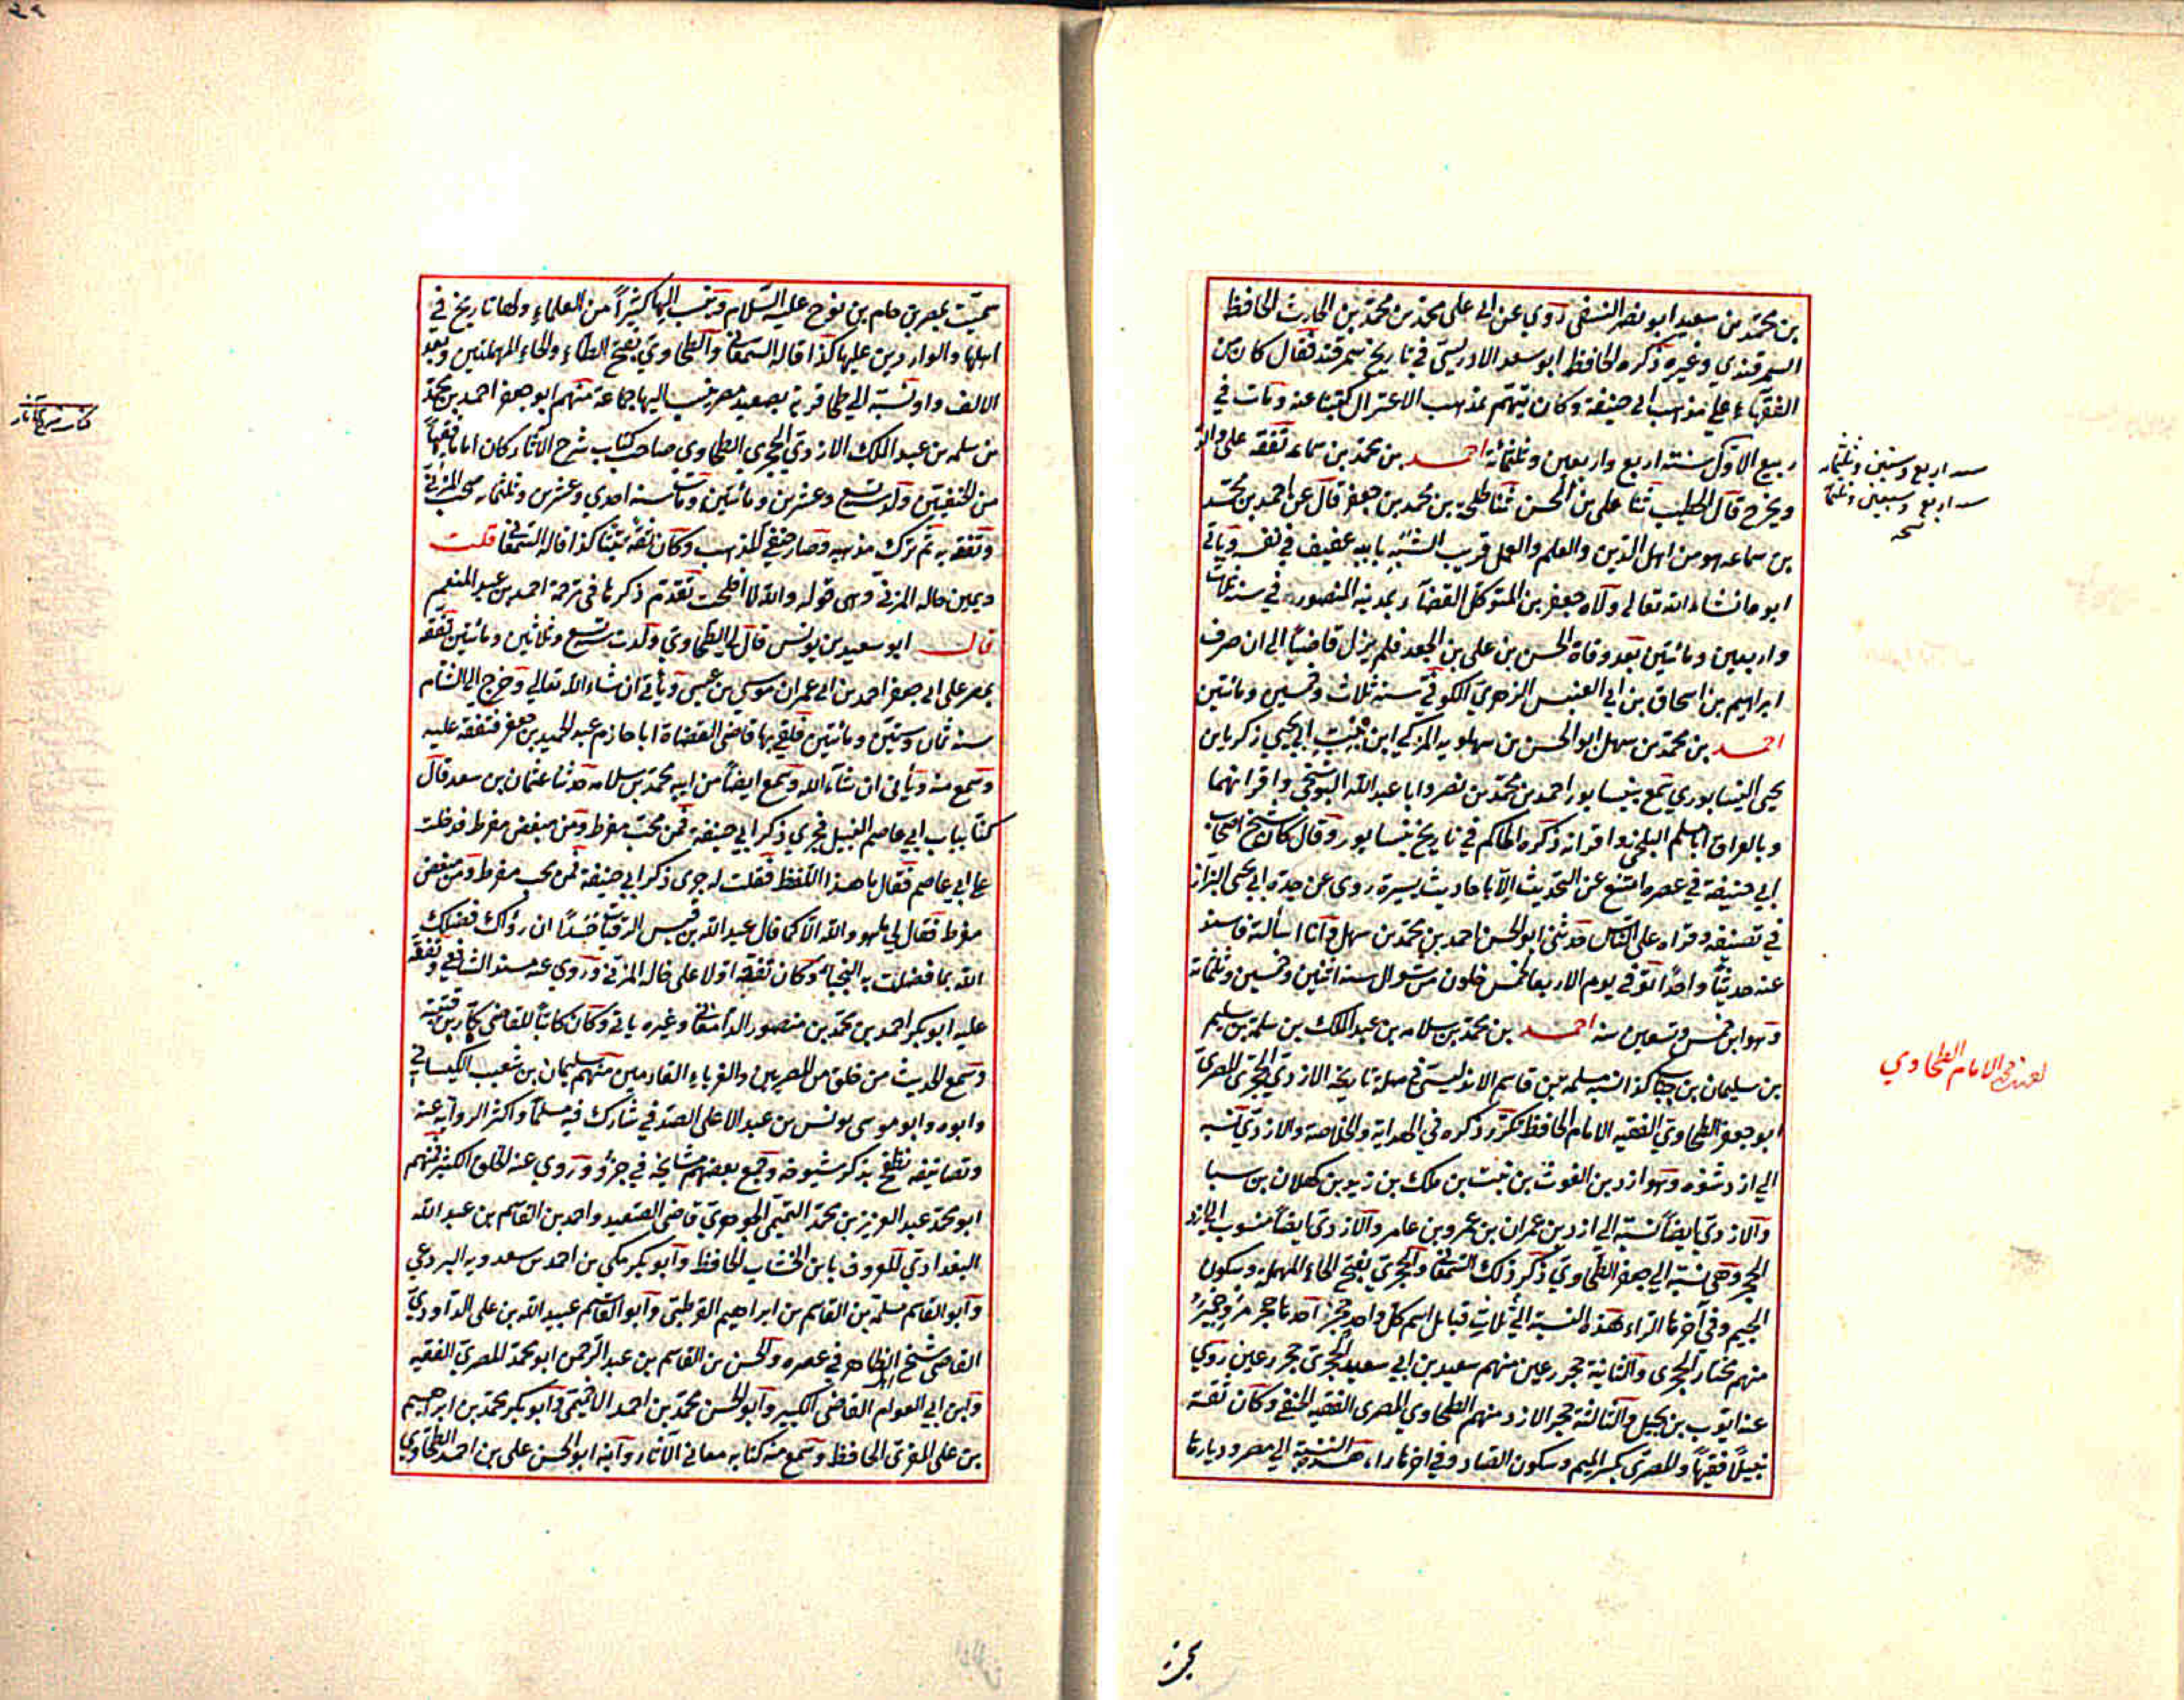 بن محمد بن سعيد ابو نصر النسفى روى عن ابى على محمد بن محمد بن الحارث الحافظ
السمرقندي وغيره ذكره الحافظ ابو سعد الادريسى في تاريخ سمرقند فقال كان من
الفقهاء على مذهب ابي حنيفة وكان يتهم بمذهب الاعتزال كتبنا عنه ومات في
ربيع الاول سنة اربع واربعين وثلثمائة احمد بن محمد بن سماعة تفقه على والده
ويخرج قال الخطيب ثنا على بن الحسن ثنا طلحة بن محمد بن جعفر قال عن احمد بن محمد
بن سماعه هو من اهل الدين والعلم والعمل قريب الشبه بابيه عفيف في نفسه وياتي
ابوه ان شاء الله تعالى ولاه جعفر بن المتوكل القضاء بمدينة المنصور في سنة ثلاث
واربعين ومائتين بعد وفاة الحسن بن على بن الجعد فلم يزل قاضيا الى ان صرف
ابراهيم بن اسحاق بن ابي العنبس الزهري الكوفي سنة ثلاث وخمسين ومائتين
احمد بن محمد بن سهل ابو الحسن بن سهلويه المزكي ابن بنت ابي يحيى زكريا بن
يحيى النيسابوري سمع بنيسابور احمد بن محمد بن نصر وابا عبد الله البوشنجي واقرانهما
وبالعراق ابا مسلم البلخي واقرانه ذكره الحاكم في تاريخ نيسابور وقال كان شيخ اصحاب
ابي حنيفة في عصره امتنع عن التحديث الا باحاديث يسيرة روى عن جده ابي يحيى البزاز
في تصنيفه وقراه على الناس حدثني ابو الحسن احمد بن محمد بن سهل وانا اسالته فاسند
عنه حديثا واحدا توفى يوم الاربعا لخمس خلون من شوال سنة اثنين وخمسين وثلثمائة
وهو ابن خمس وتسعين سنه احمد بن محمد بن سلامه بن عبد الملك بن سلمة بن سليم
بن سليمان بن جباب كذا نسبه مسلمه بن قاسم الاندلسي في صلة تاريخه الازدي الحجري المصري
ابو جعفر الطحاوي الفقيه الامام الحافظ تكرر ذكره في الهداية والخلاصة والازدي نسبه
الى ازد شنوه وهو ازد بن الغوث بن نبت بن ملك بن زيد بن كهلان بن سبا
والازدي ايضا نسبة الى ازد بن عمران بن عمرو بن عامر والازدي ايضا منسوب الى ازد
الحجر وهي نسبة ابي جعفر الطحاوي ذكر ذلك السمعاني والحجري بفتح الحاء المهملة وسكون
الجيم وفي آخرها الراء هذه النسبة الى ثلاث قبايل اسم كل واحد حجر احدها حجر
منهم مختار الحجري والثانية حجر رعين منهم سعيد بن ابي سعيد الحجري حجر رعين روى
عنه ايوب بن بجيل والثالثة حجر الازد منهم الطحاوي المصري الفقيه الحنفي وكان ثقة
نبيلا فقيها والمصري بكسر الميم وسكون الصاد وفي اخرها راء هذه النسبة الى مصر وديارها
سنه اربع وستين وثلثمائه
سنه اربع وسبعين وثلثمائه
نسخه
الامام الطحاوي
سميت بمصر بن حام بن نوح عليه السلام ونسب اليها كثيرا من العلماء ولها تاريخ في
اهلها والواردين عليها كذا قاله السمعاني والطحاوي بفتح الطاء والحاء المهملتين وبعد
الالف واو نسبة الى طحا قرية بصعيد مصر ينسب اليها جماعة منهم ابو جعفر احمد بن محمد
بن سلمه بن عبد الملك الازدي الحجري الطحاوي صاحب كتاب شرح الآثار كان اماما فقيها
من الحنفيين ولد تسع وعشرين ومائتين ومات سنه احدي وعشرين وثلثمائه صحب المزني
وتفقه به ثم ترك مذهبه وصار حنفي المذهب وكان ثقة ثبتا كذا قاله السمعاني قلت
ويمين خاله المزني وهى قوله والله لا افلحت تقدم ذكرها في ترجمة احمد بن عبد المنعم
قال ابو سعيد بن يونس قال لي الطحاوي ولدت سنة تسع وثلاثين ومائتين تفقه
بمصر على ابي جعفر احمد بن ابي عمران موسى بن عيسى وياتي ان شاء الله تعالى وخرج الى الشام
سنه ثمان وستين ومائتين فلقى بها قاضى القضاة ابا حازم عبد الحميد بن جعفر فتفقه عليه
وسمع منه ويأتى ان شاء الله وسمع ايضا من ابيه محمد بن سلامه حدثنا عثمان بن سعد قال
كنا بباب ابي عاصم النبيل فجرى ذكر ابي حنيفة فمن محب مفرط ومن مبغض مفرط فدخلت
على ابي عاصم فقال ما هذا اللفظ فقلت له جرى ذكر ابي حنيفة فمن محب مفرط ومن مبغض
مفرط فقال لي ما هو والله الا كما قال عبد الله بن قيس الرقيات حسدا ان راوك فضلك
الله بما فضلت به النجبا وكان تفقه اولا على خاله المزني وروى عنه مسند الشافعي وتفقه
عليه ابو بكر احمد بن محمد بن منصور الدامغاني وغيره ياتي وكان كاتبا للقاضى بكار بن قتيبة
وسمع الحديث من خلق من المصريين والغرباء القادمين منهم سليمان بن شعيب الكيساني
وابوه وابو موسى يونس بن عبد الاعلى الصدفي شارك فيه مسلما واكثر الرواية عنه
وتصانيفه تطفح بذكر شيوخه وجمع بعضهم مشايخه في جزؤ وروى عنه الخلق الكثير منهم
ابو محمد عبد العزيز بن محمد التميمي الجوهري قاضى الصعيد واحمد بن القاسم بن عبد الله
البغدادي المعروف بابن الخشاب الحافظ وابو بكر مكي بن احمد بن سعدويه البردعي
وابو القاسم مسلمة بن القاسم بن ابراهيم القرطبي وابو القاسم عبيد الله بن على الداودي
القاضى شيخ الظاهر في عصره والحسن بن القاسم بن عبد الرحمن ابو محمد المصري الفقيه
وابن ابي العوام القاضى الكبير وابو الحسن محمد بن احمد الاخميمي وابو بكر محمد بن ابراهيم
بن على المقري الحافظ وسمع منه كتابه معاني الآثار وابنه ابو الحسن على بن احمد الطحاوي